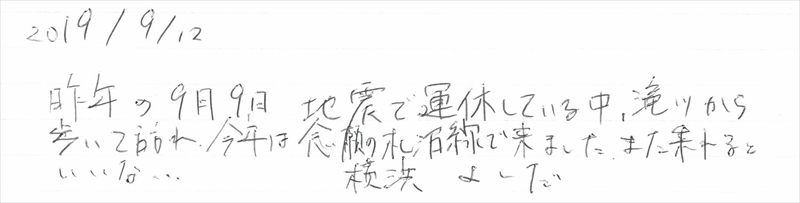 2019/9/12
昨年の9月9日 地震で運休している中、滝川から
歩いて訪れ、今年は念願の札沼線で来ました。また来れると
いいな…
横浜 よしだ